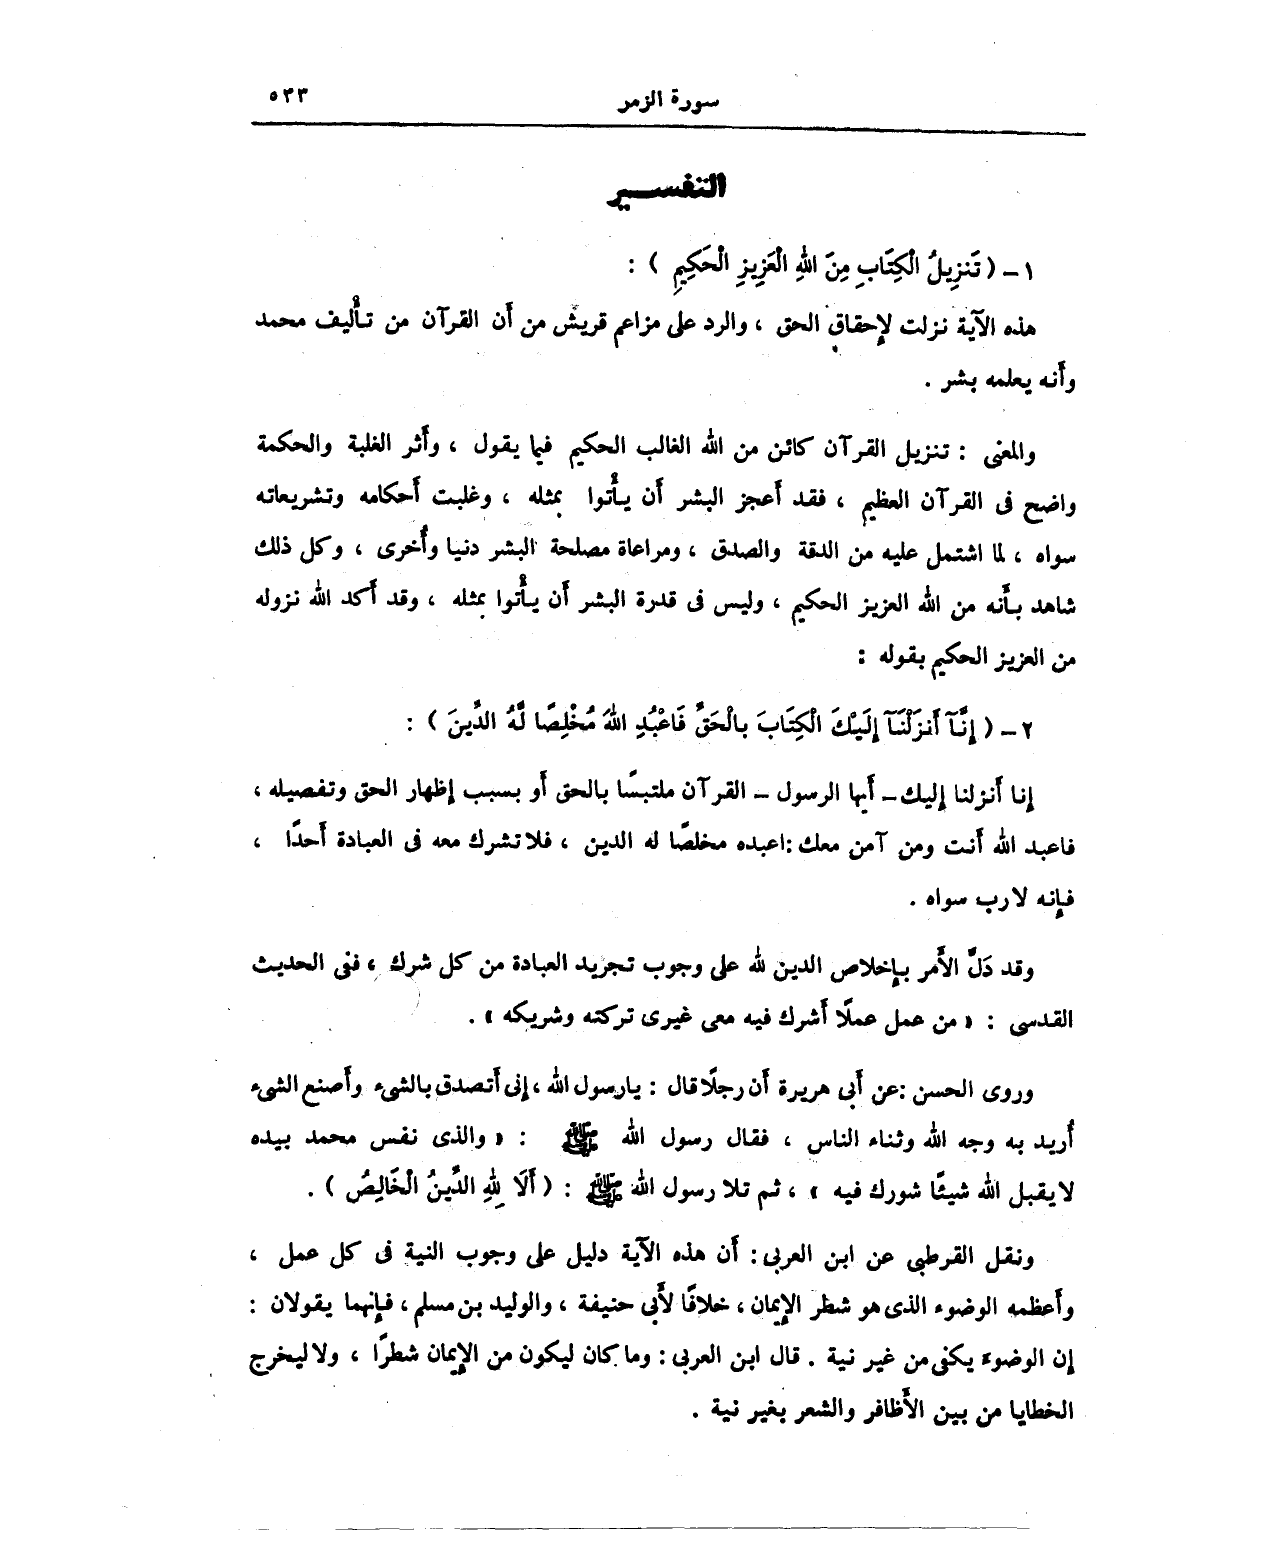 سورة الزمر ٥٣٣
التفسير
١ – ( تَنزِيلُ الْكِتَابِ مِنَ اللهِ الْعَزِيزِ الْحَكِيمِ ) :
هذه الآية نزلت لإحقاق الحق ، والرد على مزاعم قريش من أن القرآن من تأليف محمد
وأنه يعلمه بشر .
والمعنى : تنزيل القرآن كائن من الله الغالب الحكيم فيما يقول ، وأثر الغلبة والحكمة
واضح فى القرآن العظيم ، فقد أعجز البشر أن يأتوا بمثله ، وغلبت أحكامه وتشريعاته
سواه ، لما اشتمل عليه من الدقة والصدق ، ومراعاة مصلحة البشر دنيا وأُخرى ، وكل ذلك
شاهد بأنه من الله العزيز الحكيم ، وليس فى قدرة البشر أن يأتوا بمثله ، وقد أكد الله نزوله
من العزيز الحكيم بقوله :
٢ – ( إِنَّآ أَنزَلْنَآ إِلَيْكَ الْكِتَابَ بِالْحَقِّ فَاعْبُدِ اللهَ مُخْلِصًا لَّهُ الدِّينَ ) :
إنا أنزلنا إليك – أيها الرسول – القرآن ملتبسًا بالحق أو بسبب إظهار الحق وتفصيله ،
فاعبد الله أنت ومن آمن معك : اعبده مخلصًا له الدين ، فلا تشرك معه فى العبادة أحدًا ،
فإنه لا رب سواه .
وقد دَلَّ الأمر بإخلاص الدين لله على وجوب تجريد العبادة من كل شرك ، ففى الحديث
القدسى : « من عمل عملًا أشرك فيه معى غيرى تركته وشريكه » .
وروى الحسن : عن أبى هريرة أن رجلًا قال : يا رسول الله ، إنى أتصدق بالشىء وأصنع الشىء
أُريد به وجه الله وثناء الناس ، فقال رسول الله ﷺ : « والذى نفس محمد بيده
لا يقبل الله شيئًا شورك فيه » ، ثم تلا رسول الله ﷺ : ( أَلَا لِلَّهِ الدِّينُ الْخَالِصُ ) .
ونقل القرطبى عن ابن العربى : أن هذه الآية دليل على وجوب النية فى كل عمل ،
وأعظمه الوضوء الذى هو شطر الإيمان ، خلافًا لأبى حنيفة ، والوليد بن مسلم ، فإنهما يقولان :
إن الوضوء يكفى من غير نية . قال ابن العربى : وما كان ليكون من الإيمان شطرًا ، ولا ليخرج
الخطايا من بين الأظافر والشعر بغير نية .